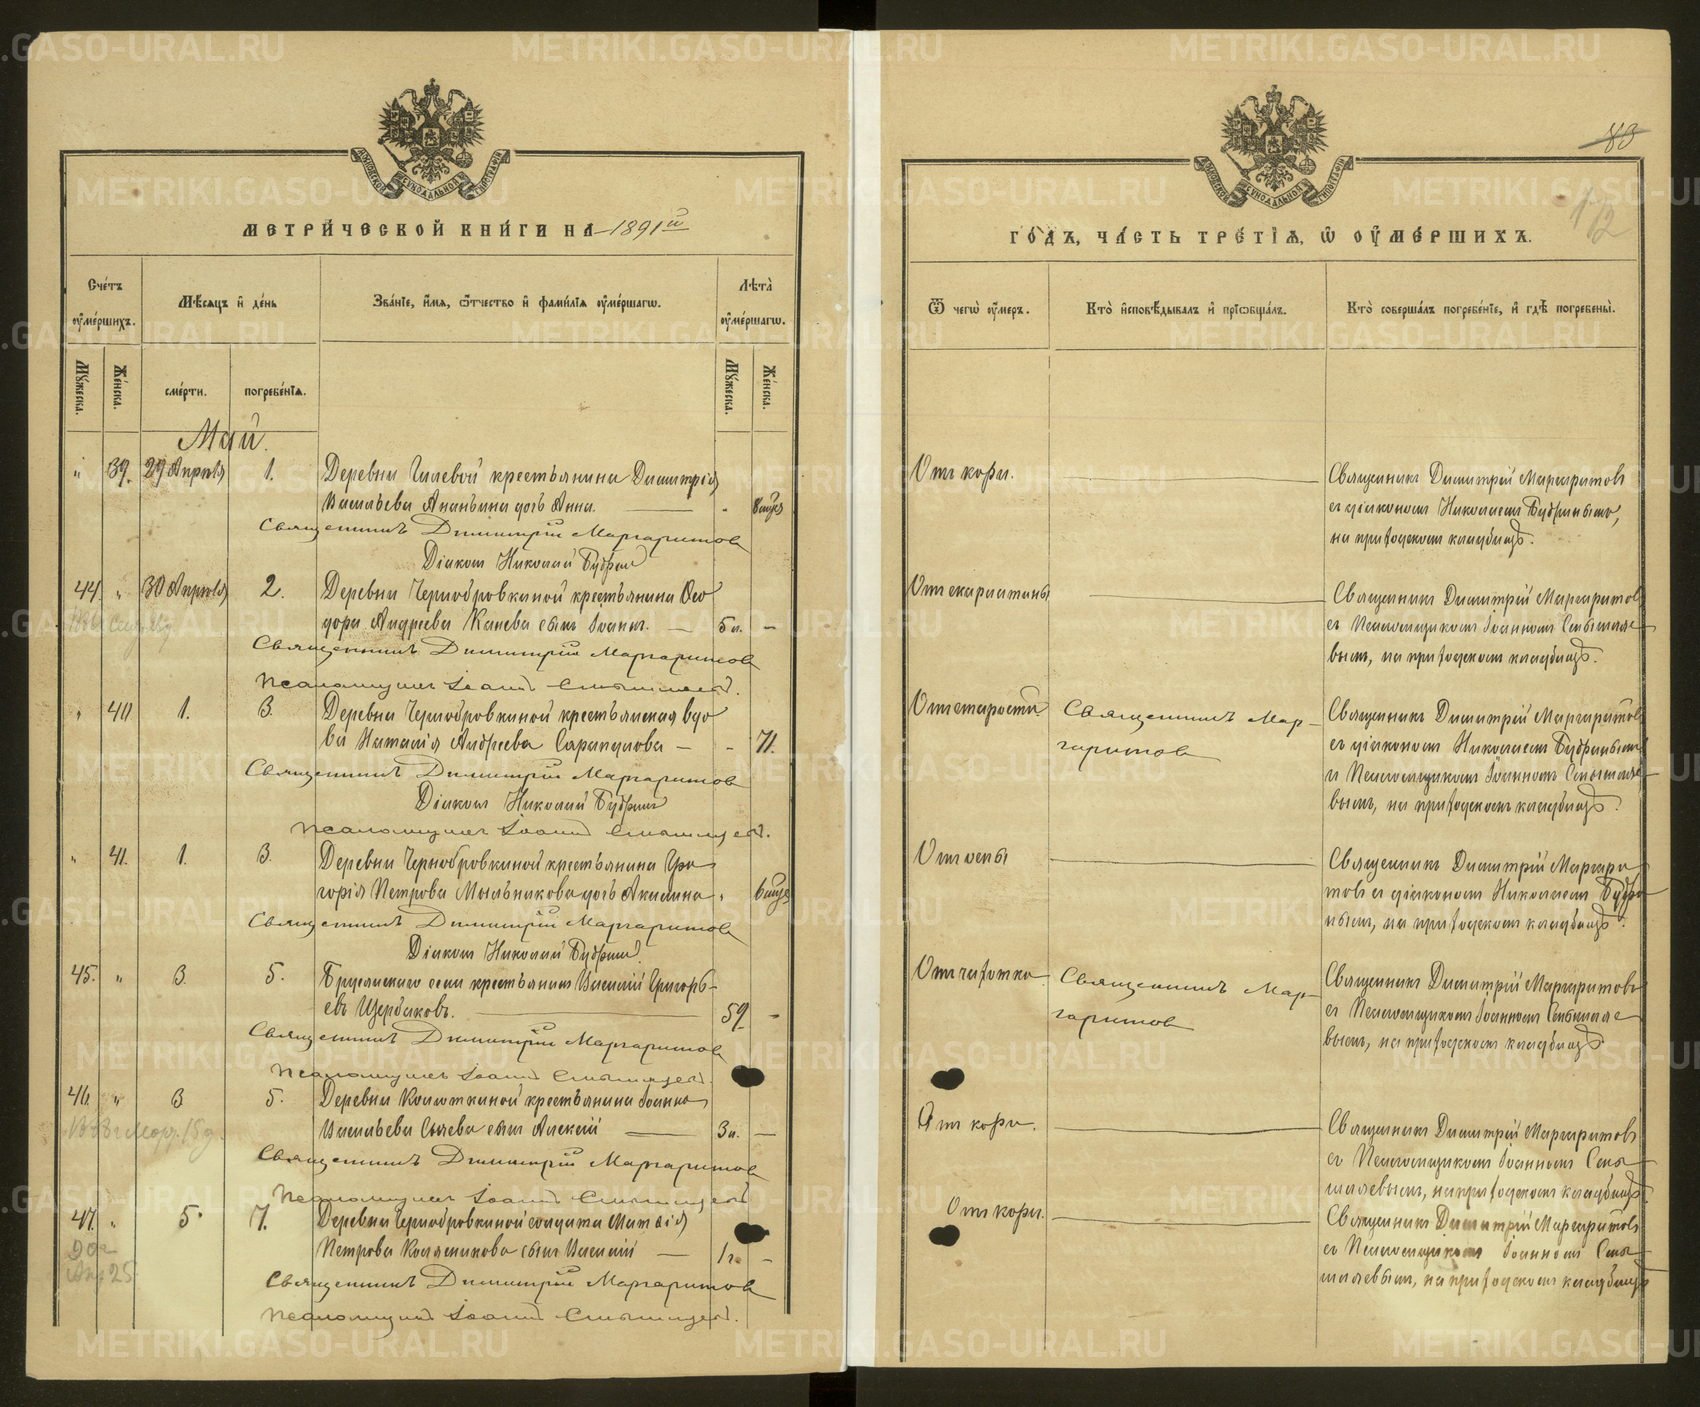 МЕТРИ́ЧЕСКОЙ КНИ́ГИ НА 1891й
Сче́тъ ᲂу҆ме́ршихъ.
Мѣ́сяцъ и҆ де́нь
Зва́нїе, и҆́мя, ѻ҆́тчество и҆ фами́лїя ᲂу҆ме́ршагѡ.
Лѣ́та ᲂу҆ме́ршагѡ.
Мꙋ́жеска.
Же́нска.
сме́рти.
погребе́нїя.
Мꙋ́жеска.
Же́нска.
Май.
" 39. 29 Апрѣля 1. Деревни Гилевой крестьянина Димитрія
Васильева Ананьина дочь Анна.
Священникъ Димитрій Маргаритовъ
Діаконъ Николай Бубринъ
44. " 30 Апрѣля 2. Деревни Чернобровкиной крестьянина Ѳео
дора Андреева Канева сынъ Іоаннъ. 5 л. –
Священникъ Димитрій Маргаритовъ
Псаломщикъ Іоаннъ
" 40 1. 3. Деревни Чернобровкиной крестьянская вдо
ва Наталія Андреева Сарапулова – - 71.
Священникъ Димитрій Маргаритовъ
Діаконъ Николай Бубринъ
Псаломщикъ Іоаннъ
" 41. 1. 3. Деревни Чернобровкиной крестьянина Гри
горія Петрова Мыльникова дочь Акилина
Священникъ Димитрій Маргаритовъ
Діаконъ Николай Бубринъ.
45. " 3. 5. Бруснскаго села крестьянинъ Василій Григорь-
евъ Щербаковъ. 59 –
Священникъ Димитрій Маргаритовъ
Псаломщикъ Іоаннъ
46. " 3 5. Деревни Колюткиной крестьянина Іоанна
Васильева Сыяева сынъ Алексій 3 л. –
Священникъ Димитрій Маргаритовъ
Псаломщикъ Іоаннъ
47. " 5. 7. Деревни Чернобровкиной солдата Матѳія
Петрова Колясникова сынъ Василій 1 г. –
Священникъ Димитрій Маргаритовъ
Псаломщикъ Іоаннъ
83
112
ГО́ДЪ, ЧА́СТЬ ТРЕ́ТЇЯ, Ѡ҆ ОУ҆МЕ́РШИХЪ.
Ѿ чегѡ̀ ᲂу҆́меръ.
Кто̀ и҆сповѣ́дывалъ и҆ прїѡбща́лъ.
Кто̀ соверша́лъ погребе́нїе, и҆ гдѣ̀ погребены̀.
Отъ кори.
Священникъ Димитрій Маргаритовъ
съ діакономъ Николаемъ Бубринымъ,
на приходскомъ кладбищѣ.
Отъ скарлатины
Священникъ Димитрій Маргаритовъ
съ Псаломщикомъ Іоанномъ
вымъ, на приходскомъ кладбищѣ.
Отъ старости.
Священникъ Мар-
гаритовъ
Священникъ Димитрій Маргаритовъ
съ діакономъ Николаемъ Бубринымъ
и Псаломщикомъ Іоанномъ
вымъ, на приходскомъ кладбищѣ.
Отъ оспы
Священникъ Димитрій Маргари
товъ съ діакономъ Николаемъ Бубри
нымъ, на приходскомъ кладбищѣ.
Отъ чахотки.
Священникъ Мар-
гаритовъ
Священникъ Димитрій Маргаритовъ
съ Псаломщикомъ Іоанномъ
вымъ, на приходскомъ кладбищѣ
Отъ кори.
Священникъ Димитрій Маргаритовъ
съ Псаломщикомъ Іоанномъ
на приходскомъ кладбищѣ.
Отъ кори.
Священникъ Димитрій Маргаритовъ
съ Псаломщикомъ Іоанномъ
на приходскомъ кладбищѣ
METRIKI.GASO-URAL.RU